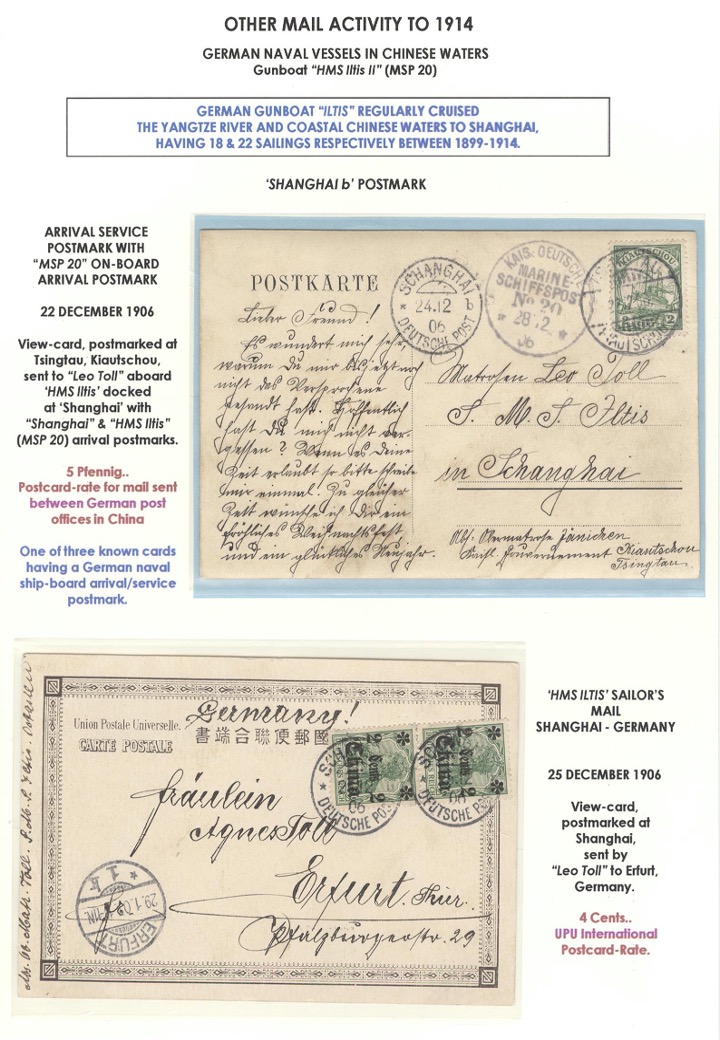 OTHER MAIL ACTIVITY TO 1914
GERMAN NAVAL VESSELS IN CHINESE WATERS
Gunboat “HMS Iltis II” (MSP 20)
GERMAN GUNBOAT “ILTIS” REGULARLY CRUISED
THE YANGTZE RIVER AND COASTAL CHINESE WATERS TO SHANGHAI,
HAVING 18 & 22 SAILINGS RESPECTIVELY BETWEEN 1899-1914.
‘SHANGHAI b’ POSTMARK
ARRIVAL SERVICE
POSTMARK WITH
“MSP 20” ON-BOARD
ARRIVAL POSTMARK
22 DECEMBER 1906
View-card, postmarked at
Tsingtau, Kiautschou,
sent to “Leo Toll” aboard
‘HMS Iltis’ docked
at ‘Shanghai’ with
“Shanghai” & “HMS Iltis”
(MSP 20) arrival postmarks.
5 Pfennig..
Postcard-rate for mail sent
between German post
offices in China
One of three known cards
having a German naval
ship-board arrival/service
postmark.
POSTKARTE
SCHANGHAI
24.12 b
06
DEUTSCHE POST
KAIS. DEUTSCHE
MARINE-
SCHIFFSPOST
No 20
28.12
06
KIAUTSCHOU
2
Lieber Freund!
Es wundert mich sehr,
warum Du mir bis jetzt noch
nicht das Versprochene
gesandt hast. Hoffentlich
hast Du mich nicht ver-
gessen? Wenn es Deine
Zeit erlaubt so bitte schreibe
mir einmal. Zu gleicher
Zeit wünsche ich Dir ein
fröhliches Weihnachtsfest
und ein glückliches Neujahr.
Matrosen Leo Toll
S. M. S. Iltis
in Schanghai
Abs: Obermatrose Jänichen
Kaisl. Gouvernement Kiautschou
Tsingtau.
Germany!
Union Postale Universelle.
國郵合聯便郵端書
CARTE POSTALE
2 Cents 2
China
2 Cents 2
China
06
DEUTSCHE POST
06
DEUTSCHE POST
fräulein
Agnes Toll
Erfurt. Thür.
Pfalzburgerstr. 29
ERFURT
29.1.0
Toll. S. Iltis.
‘HMS ILTIS’ SAILOR’S
MAIL
SHANGHAI - GERMANY
25 DECEMBER 1906
View-card,
postmarked at
Shanghai,
sent by
“Leo Toll” to Erfurt,
Germany.
4 Cents..
UPU International
Postcard-Rate.